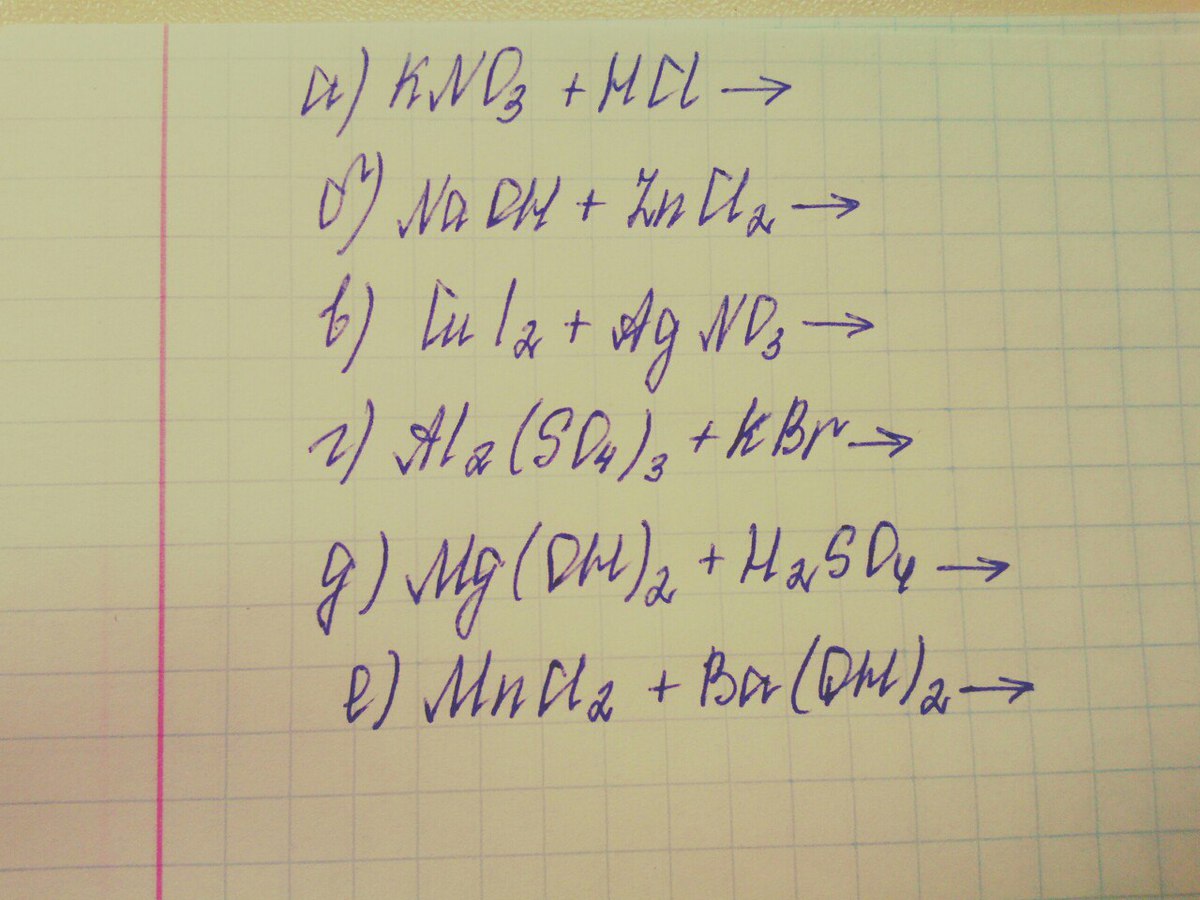 а) KNO₃ + HCl →
б) NaOH + ZnCl₂ →
в) CuI₂ + AgNO₃ →
г) Al₂(SO₄)₃ + KBr →
д) Mg(OH)₂ + H₂SO₄ →
е) MnCl₂ + Ba(OH)₂ →